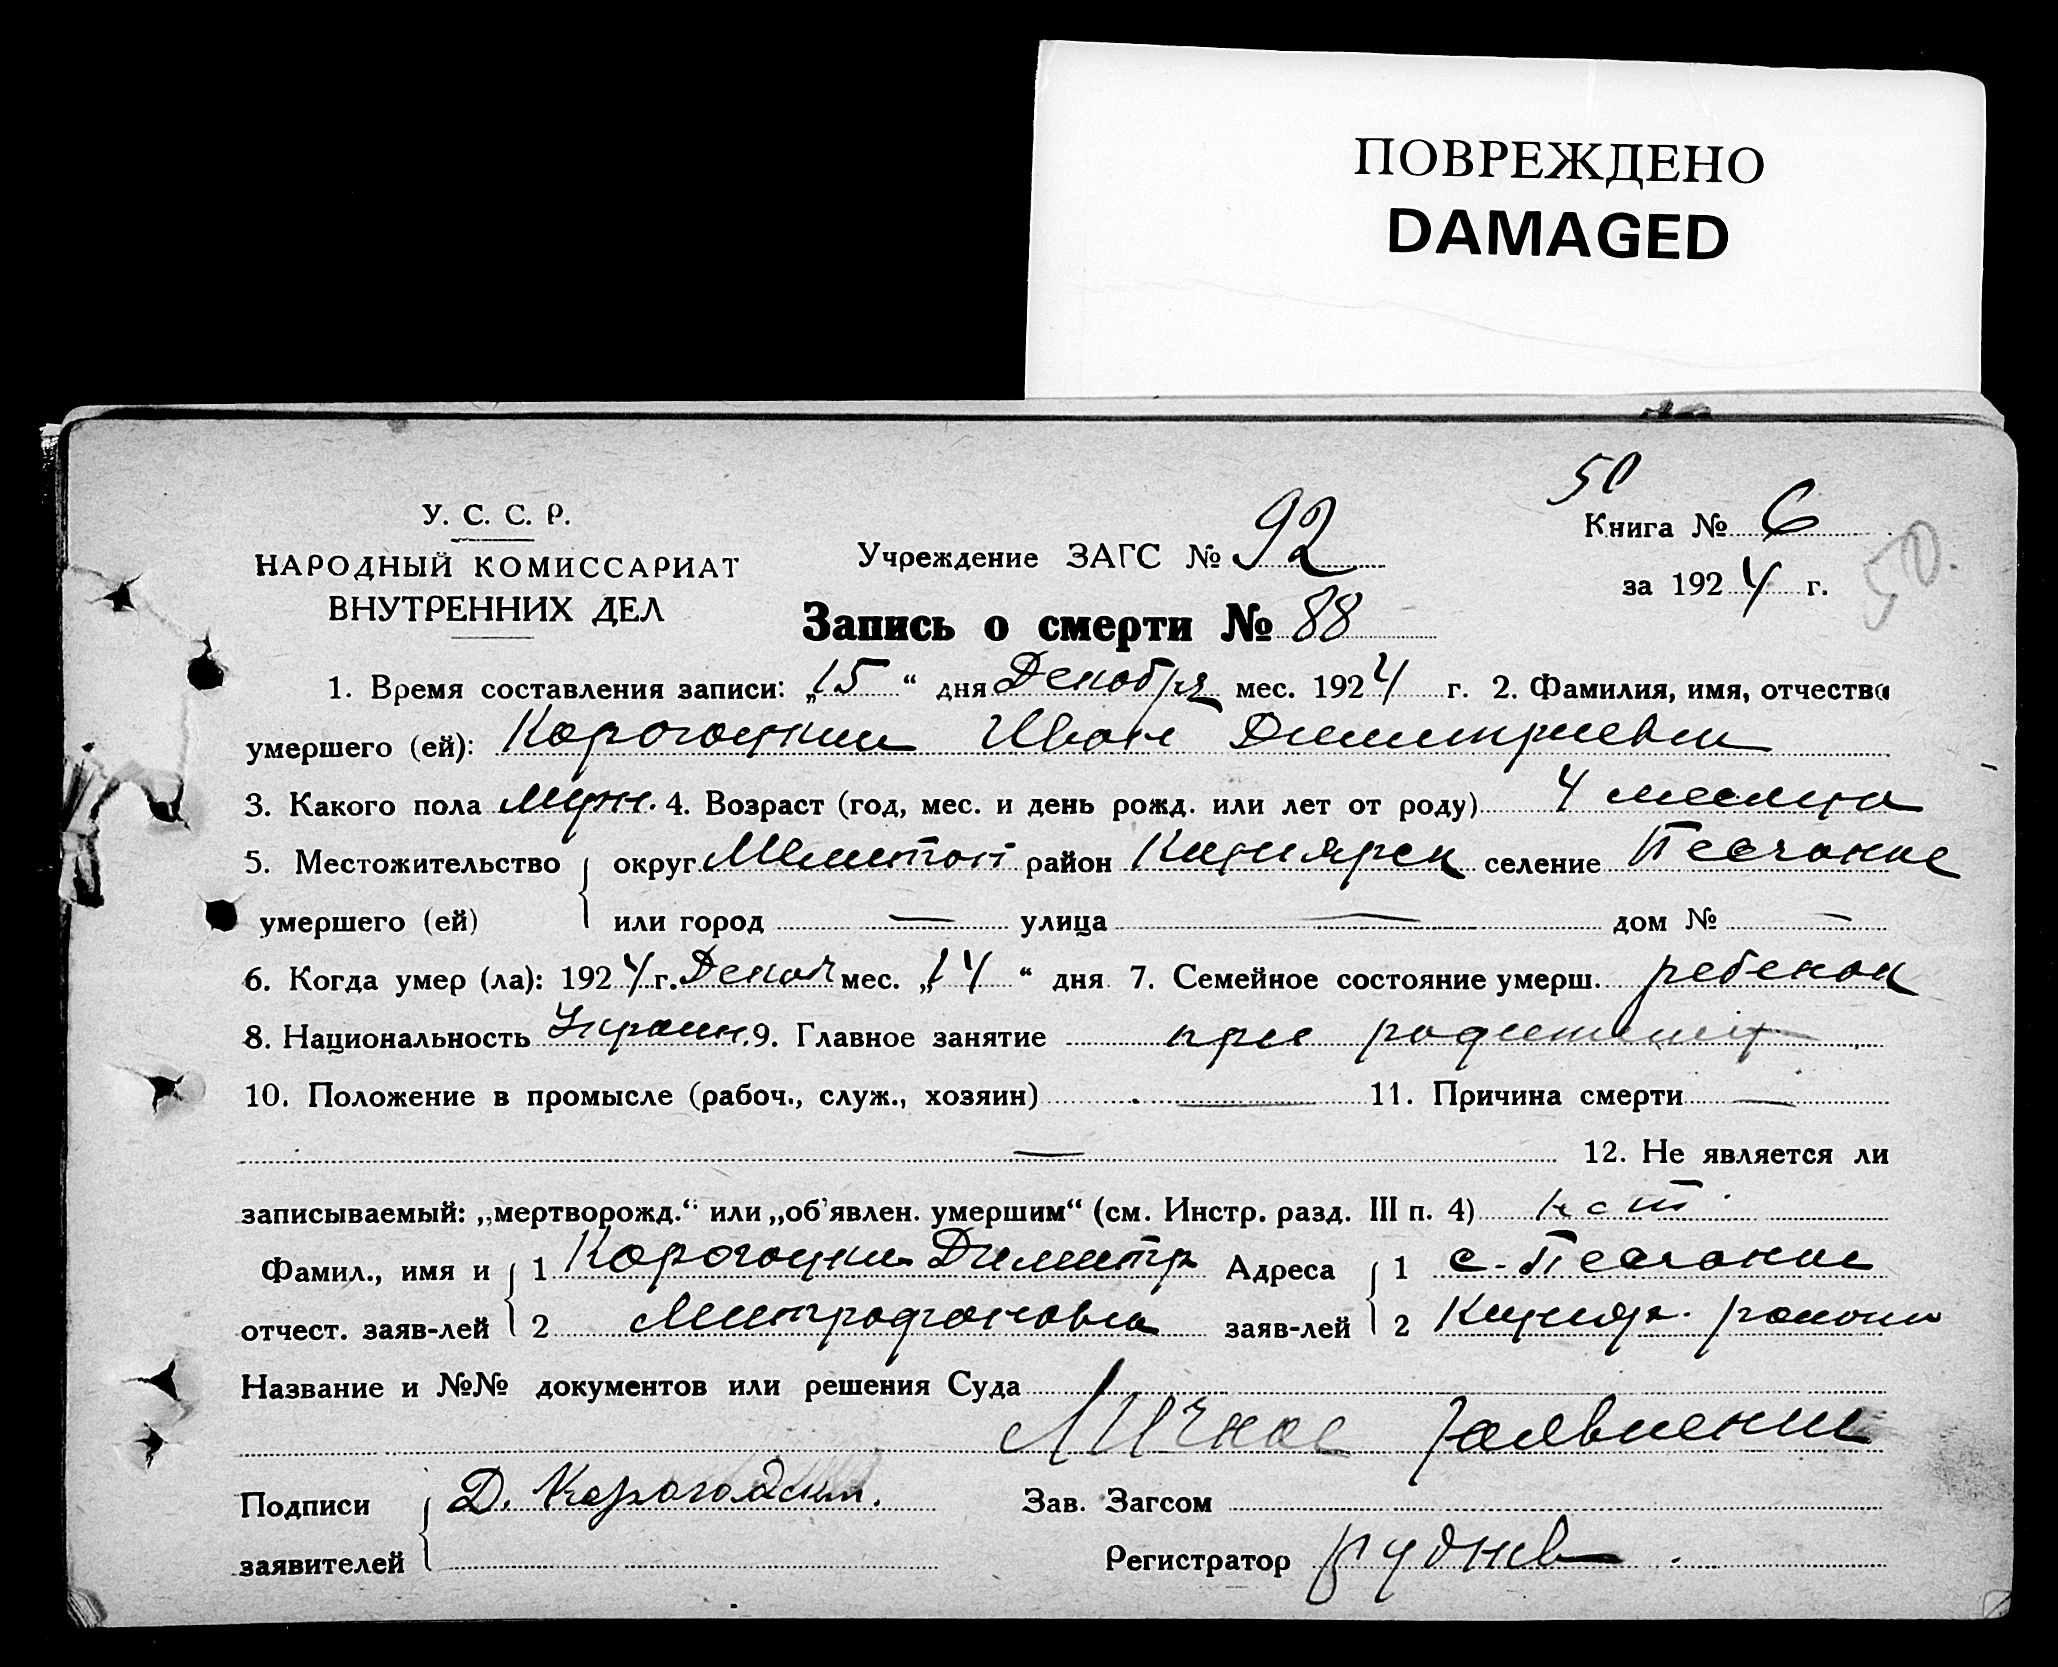 ПОВРЕЖДЕНО
DAMAGED
50
У. С. С. Р.
Книга № 6
НАРОДНЫЙ КОМИССАРИАТ
Учреждение ЗАГС № 92
50.
ВНУТРЕННИХ ДЕЛ
за 1924 г.
Запись о смерти № 88
1. Время составления записи: „15“ дня Декабря мес. 1924 г. 2. Фамилия, имя, отчество
умершего (ей): Иван Димитриевич
3. Какого пола муж. 4. Возраст (год, мес. и день рожд. или лет от роду) 4 месяца
5. Местожительство округ Мелитоп район селение Песчаное
умершего (ей) или город — улица — дом № —
6. Когда умер (ла): 1924 г. Декаб мес. „14“ дня 7. Семейное состояние умерш. ребенок
8. Национальность Украин. 9. Главное занятие при родителях
10. Положение в промысле (рабоч., служ., хозяин) — 11. Причина смерти —
— 12. Не является ли
записываемый: „мертворожд.“ или „об'явлен. умершим“ (см. Инстр. разд. III п. 4) нет
Фамил., имя и 1 Димитр Адреса 1 с. Песчаное
отчест. заяв-лей 2 Митрофанович заяв-лей 2 района
Название и №№ документов или решения Суда
Личное заявление
Подписи Д. Зав. Загсом
заявителей Регистратор Руднев